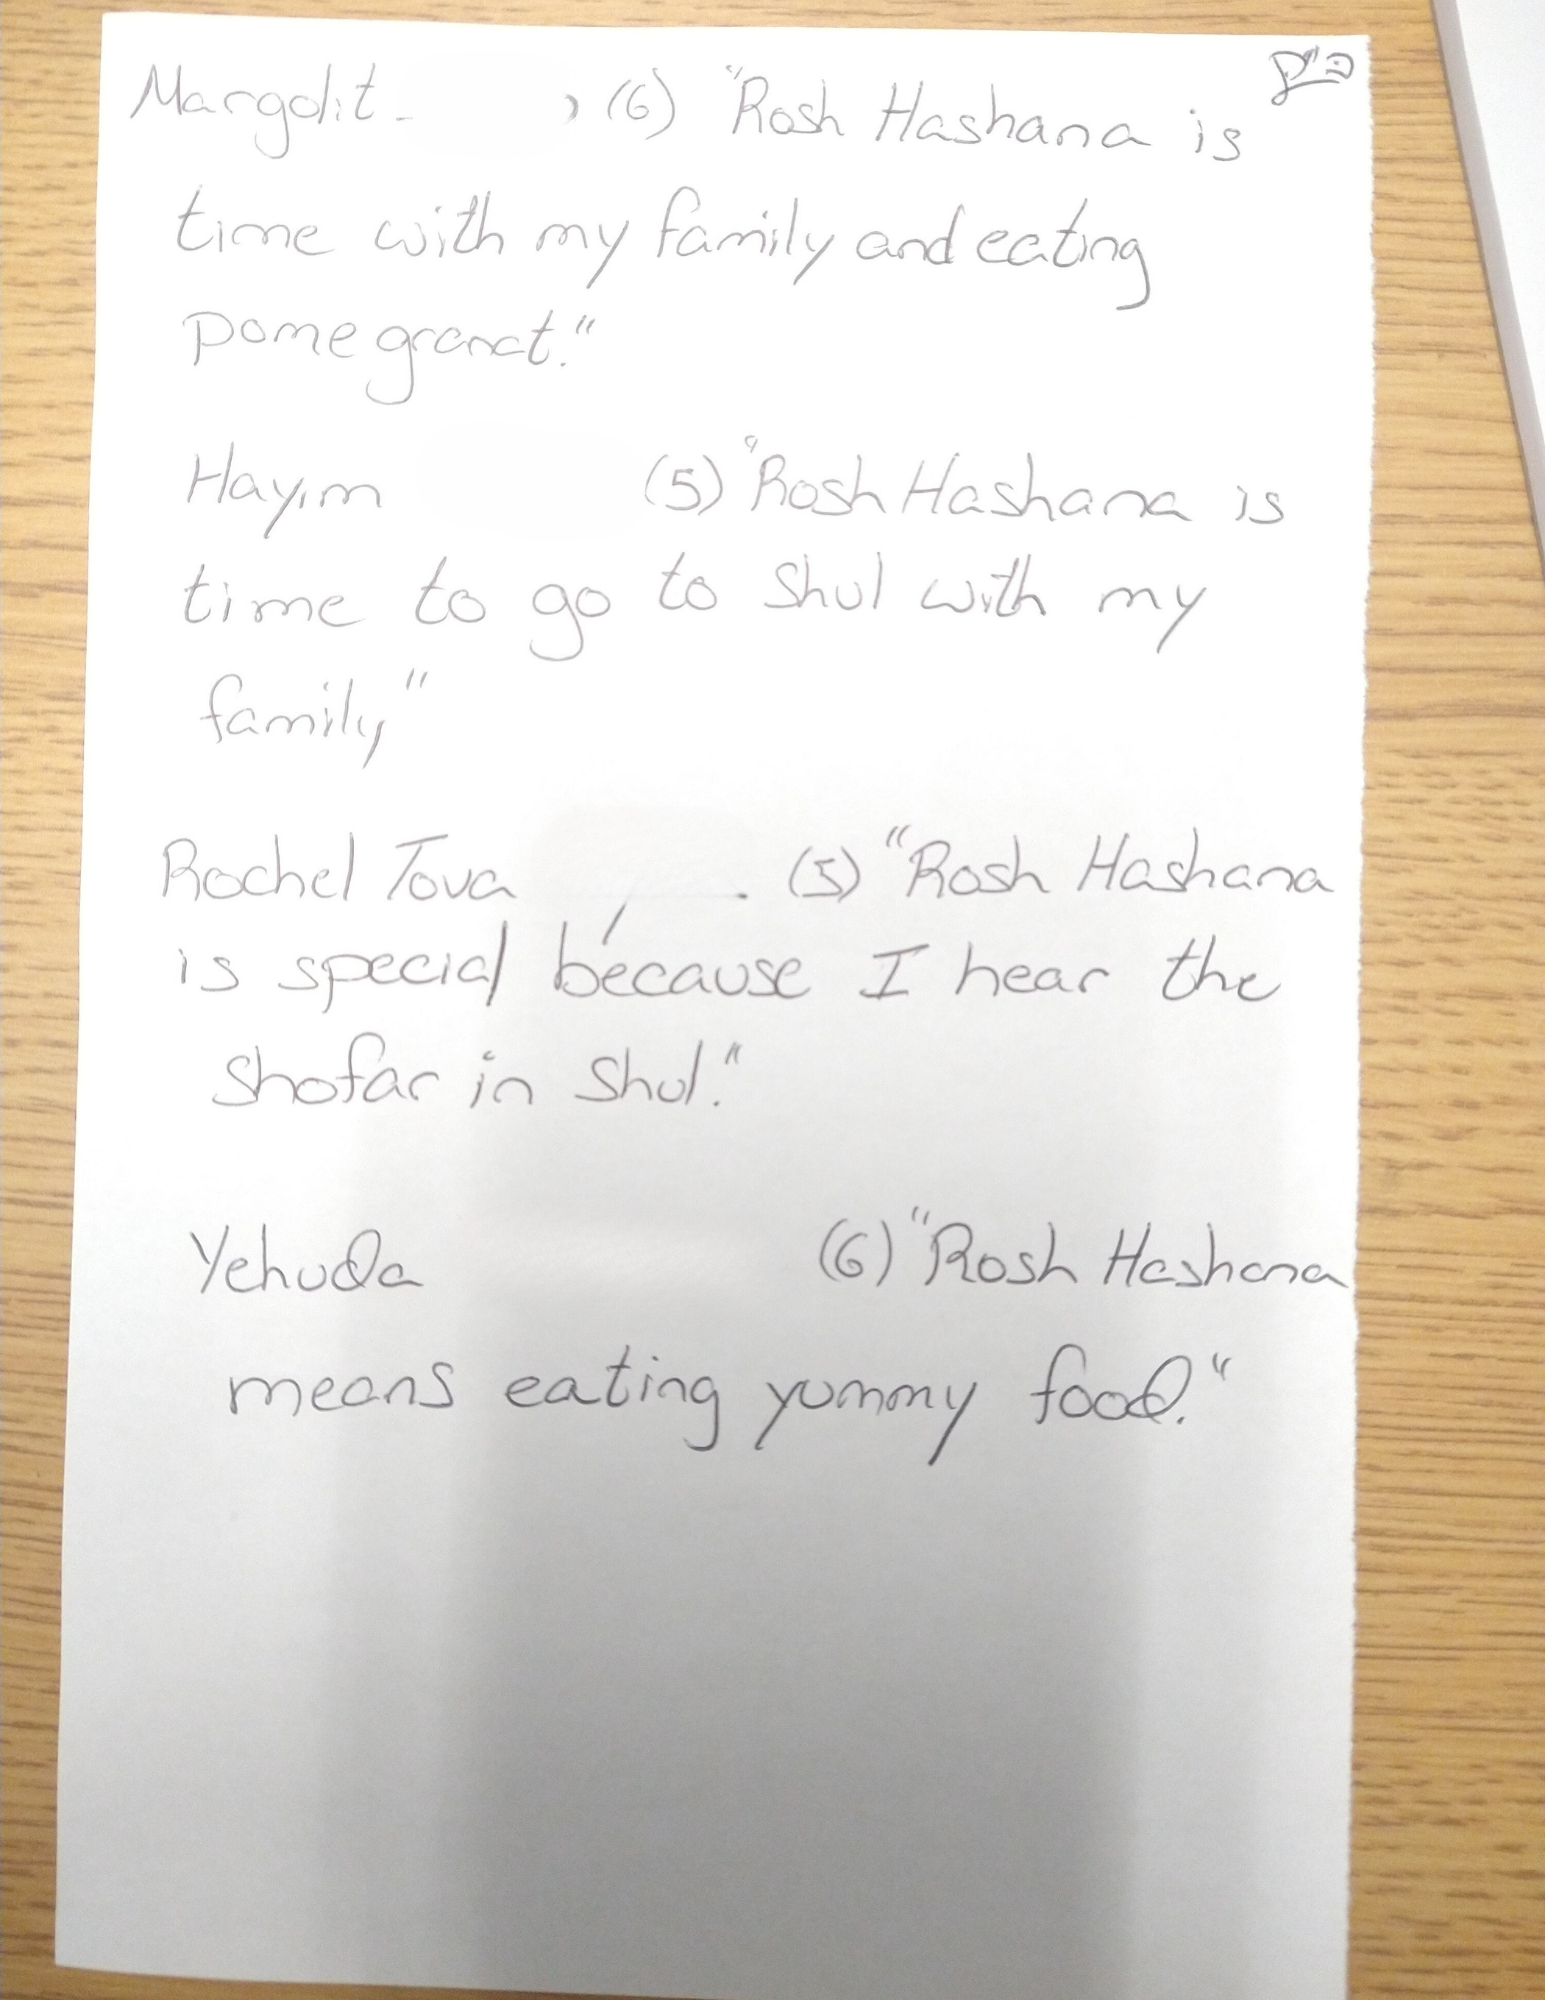 ב"ה
Margolit - , (6) "Rosh Hashana is
time with my family and eating
pomegranat."
Hayim (5) "Rosh Hashana is
time to go to Shul with my
family"
Rochel Tova . (5) "Rosh Hashana
is special because I hear the
Shofar in Shul."
Yehuda (6) "Rosh Hashana
means eating yummy food."